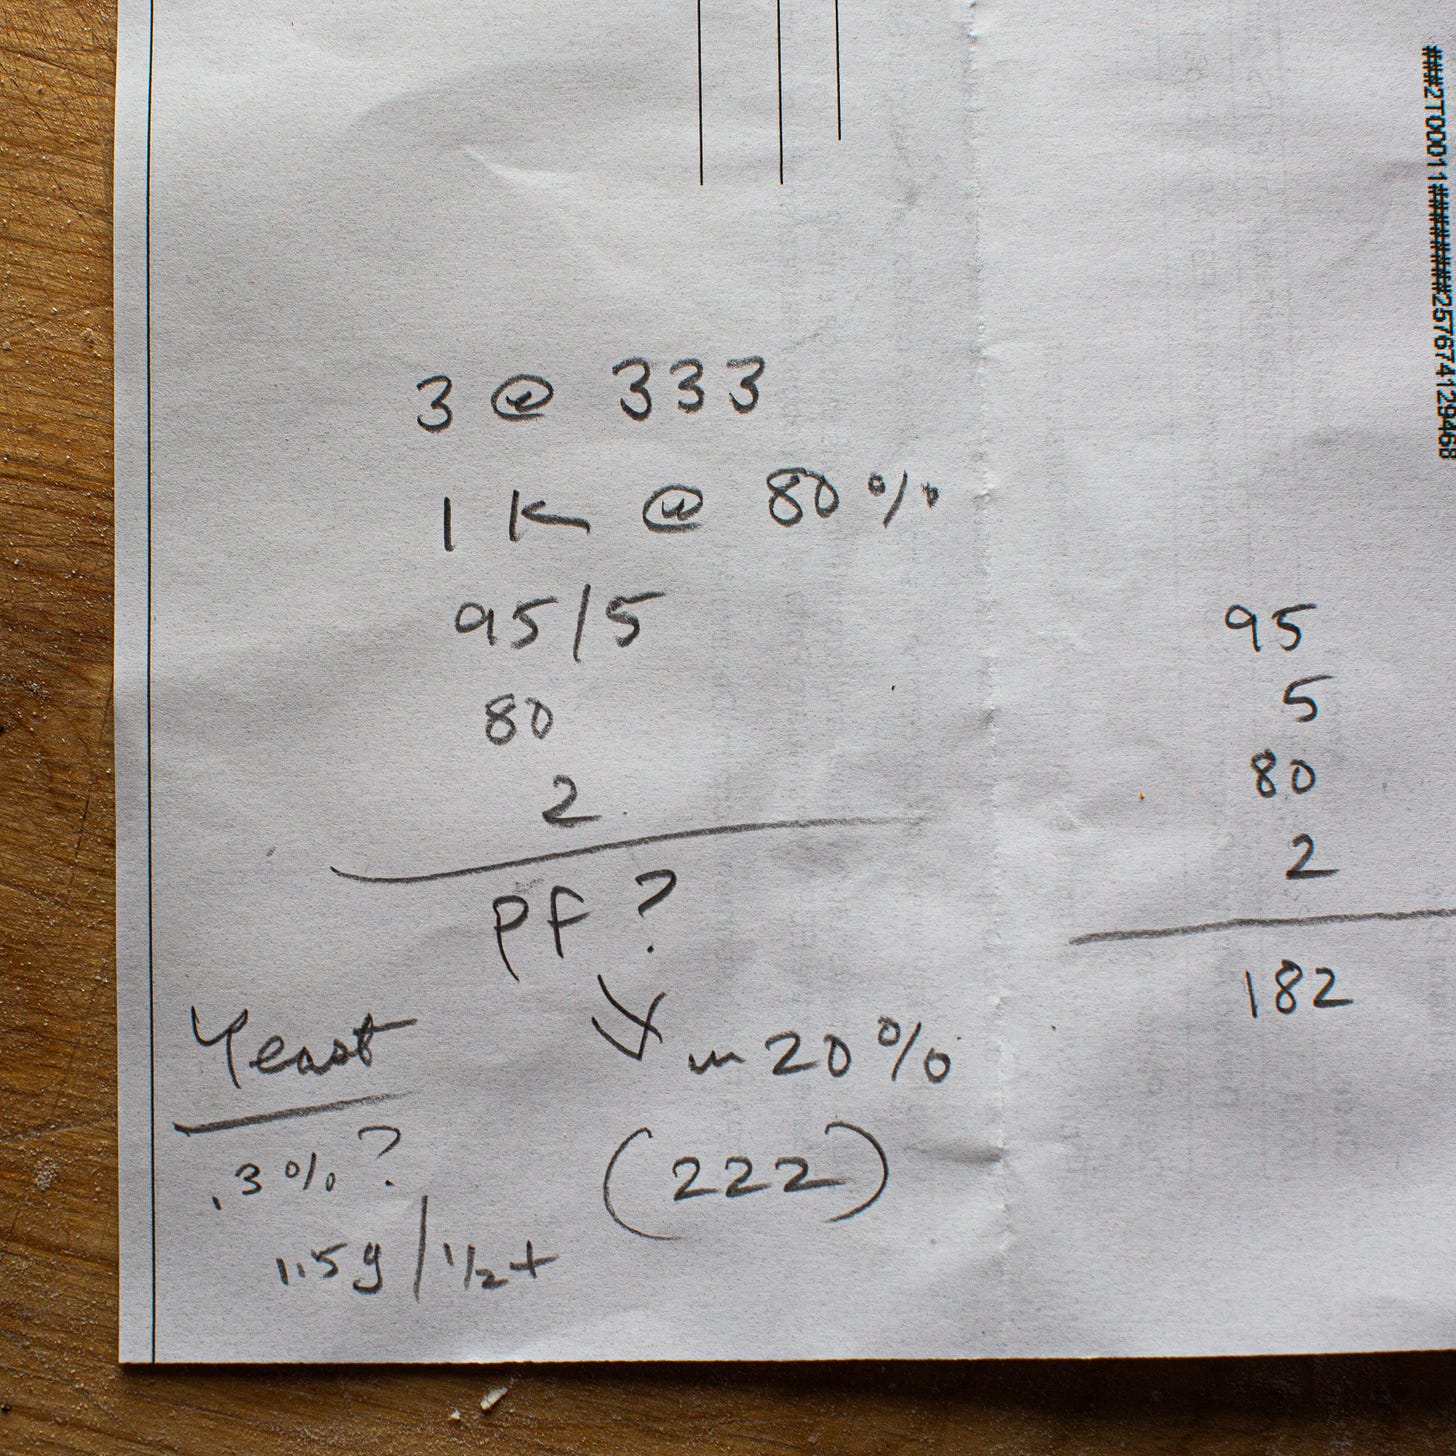 3 @ 333
1 K @ 80%
95/5
80
2
PF?
20%
(222)
Yeast
.3%?
1.5g/½t
95
5
80
2
182